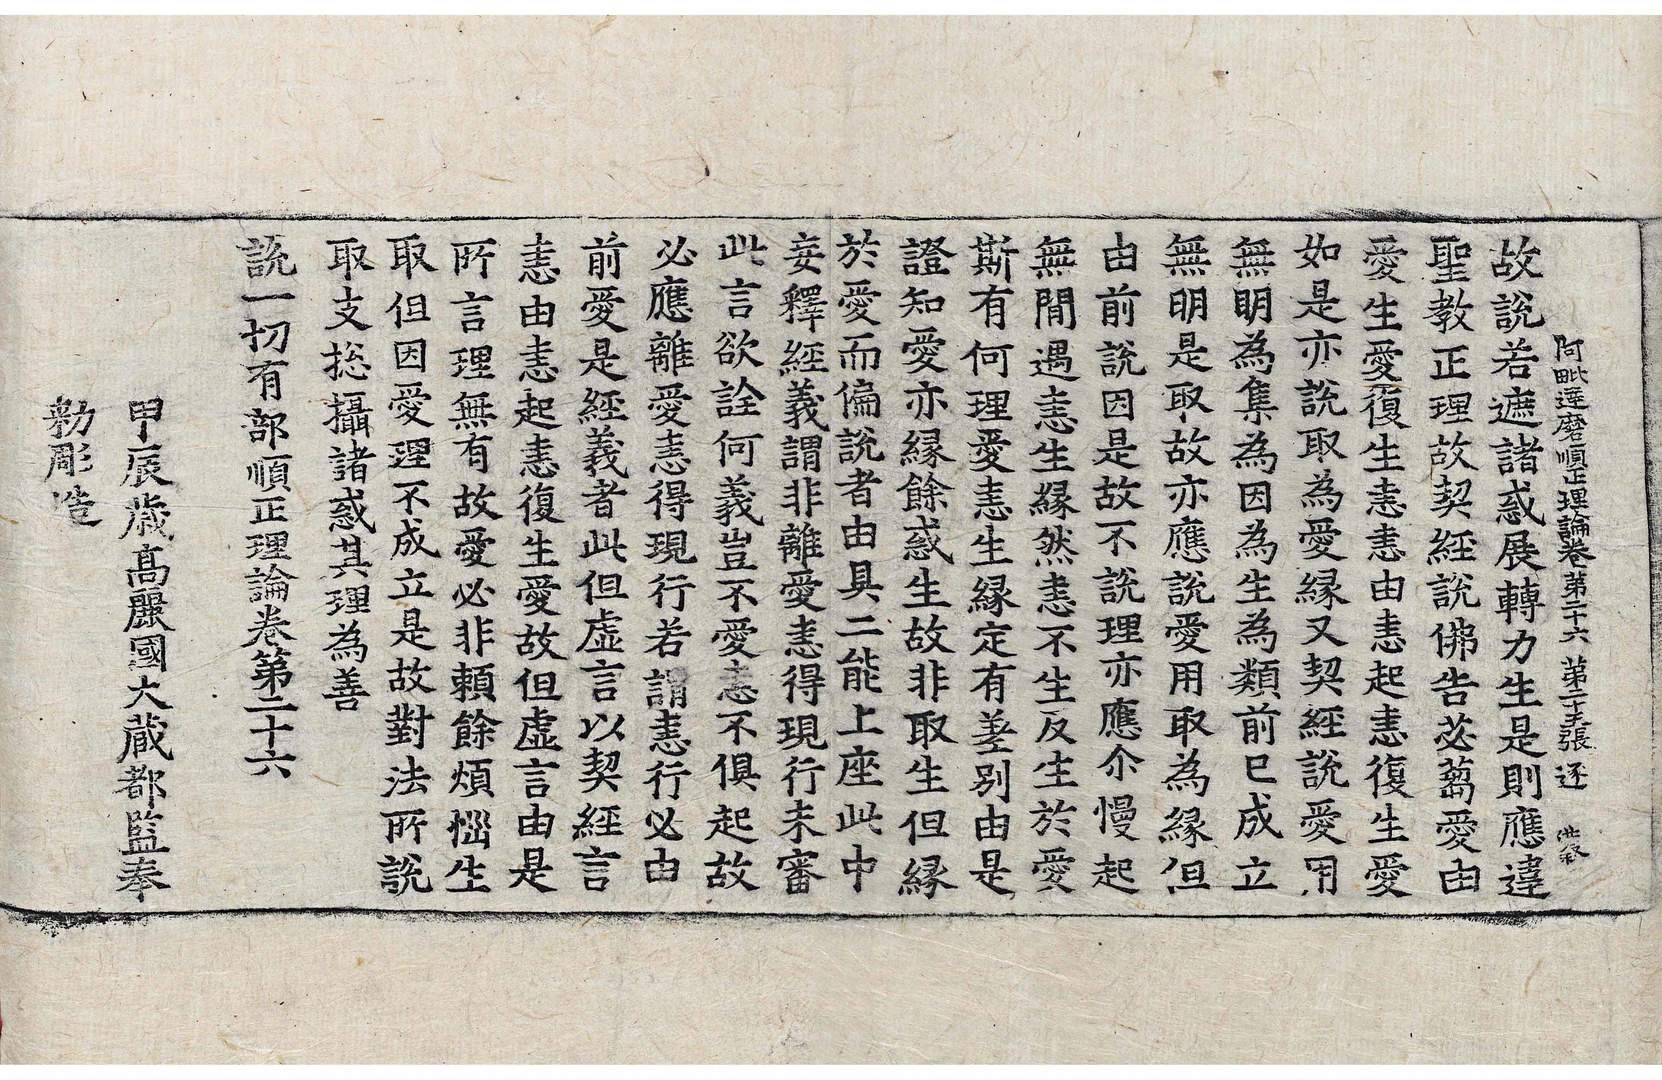 阿毗達磨順正理論卷第二十六 第二十五張 逐
故說若遮諸惑展轉力生是則應違
聖教正理故契經說佛告苾蒭愛由
愛生愛復生恚恚由恚起恚復生愛
如是亦說取為愛緣又契經說愛用
無明為集為因為生為類前已成立
無明是取故亦應說愛用取為緣但
由前說因是故不說理亦應尒慢起
無間遇恚生緣然恚不生反生於愛
斯有何理愛恚生緣定有差別由是
證知愛亦緣餘惑生故非取生但緣
於愛而偏說者由具二能上座此中
妄釋經義謂非離愛恚得現行未審
此言欲詮何義豈不愛恚不俱起故
必應離愛恚得現行若謂恚行必由
前愛是經義者此但虛言以契經言
恚由恚起恚復生愛故但虛言由是
所言理無有故愛必非賴餘煩惱生
取但因愛理不成立是故對法所說
取支揔攝諸惑其理為善
說一切有部順正理論卷第二十六
甲辰歲高麗國大藏都監奉
勑彫造